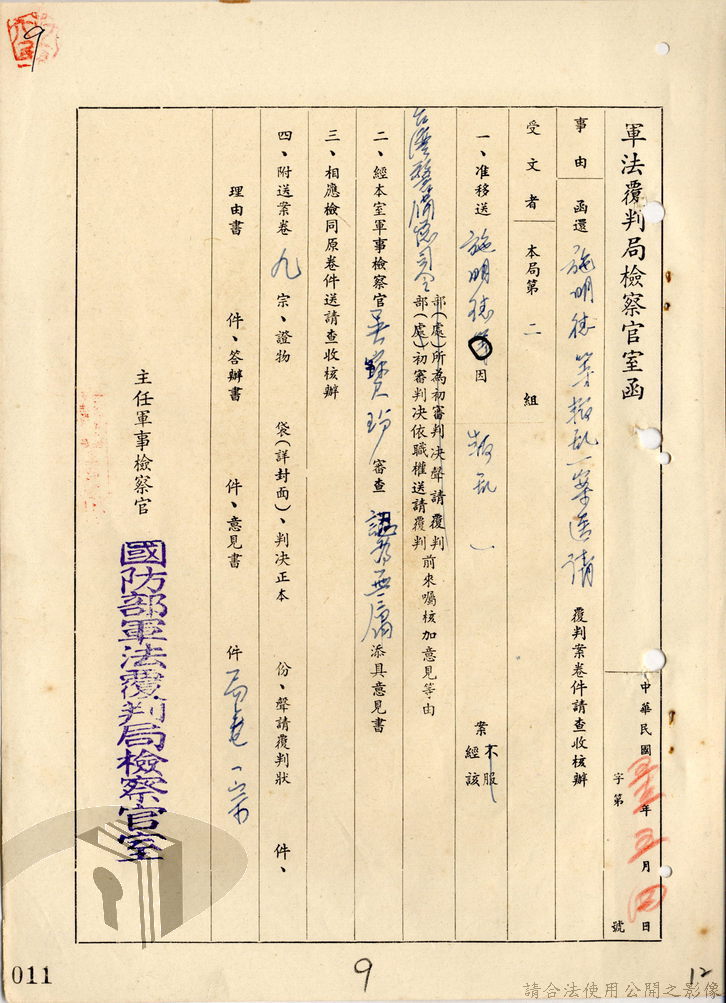 9
軍法覆判局檢察官室函
中華民國 年 五 月 四 日
字第 號
事由 函還 施明德等叛亂一案送請 覆判案卷件請查收核辦
受文者 本局第 二 組
一、准移送 施明德等因 叛亂一 案不服 經該
台灣警備總司令 部(處)所為初審判決聲請覆判 部(處)初審判決依職權送請覆判 前來囑核加意見等由
二、經本室軍事檢察官 審查 認為無庸 添具意見書
三、相應檢同原卷件送請查收核辦
四、附送案卷 九 宗、證物 袋(詳封面)、判決正本 份、聲請覆判狀 件、
理由書 件、答辯書 件、意見書 件 局卷一宗
主任軍事檢察官
國防部軍法覆判局檢察官室
011
9
12
請合法使用公開之影像